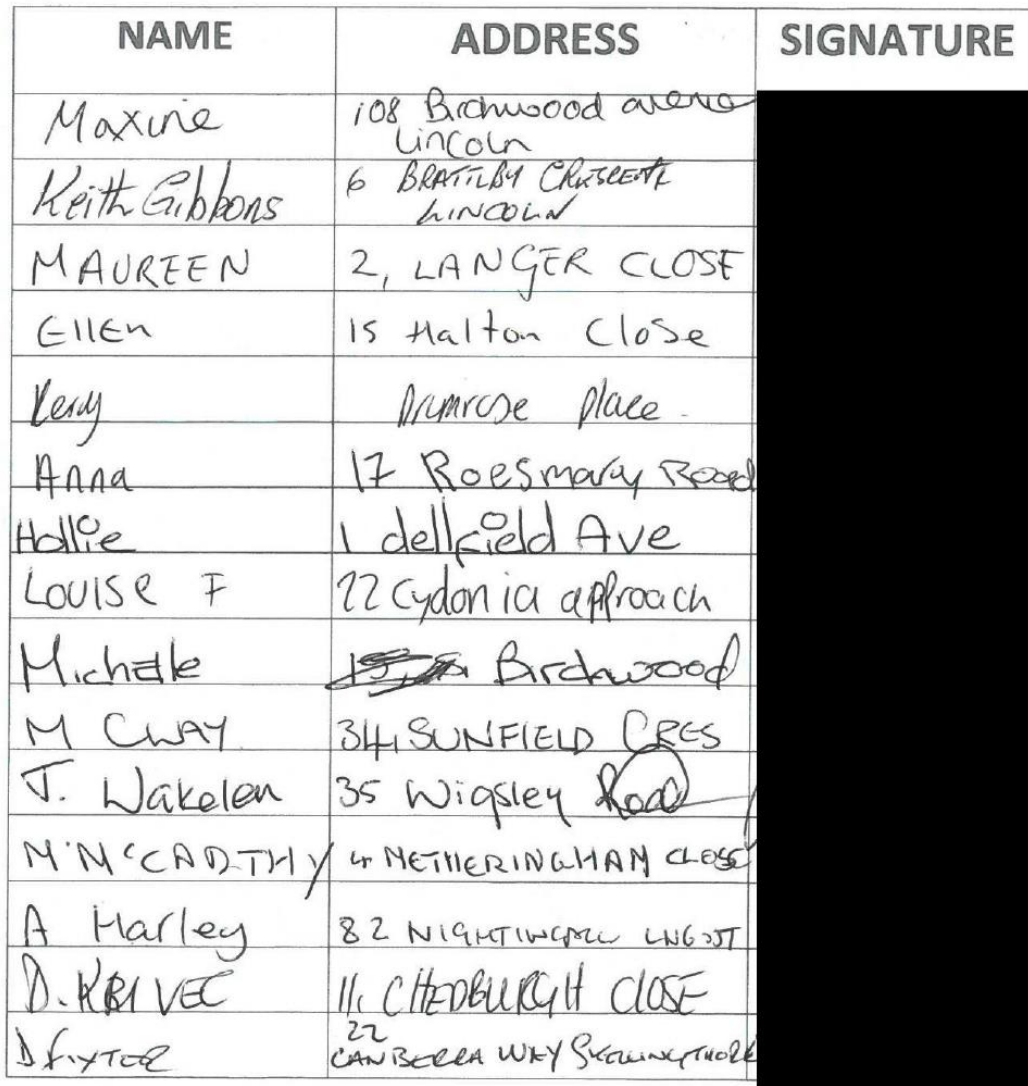 NAME ADDRESS SIGNATURE
Maxine 108 Birchwood avenue
Lincoln
Keith Gibbons 6 BRATTLBY CRESCENT
LINCOLN
MAUREEN 2, LANGER CLOSE
Ellen 15 Halton Close
Primrose place.
Anna 17 Roesmary Road
Hollie 1 dellfield Ave
Louise F 22 Cydonia approach
Michelle Birchwood
M CWAY 34, SUNFIELD CRES
J. Wakelen 35 Wigsley Road
M McCADTHY 4 METHERINGHAM CLOSE
A Harley 82 NIGHTINGALE
D. KRIVEC 11, CHEDBURGH CLOSE
D FIXTER 22
CANBERRA WAY SKELLINGTHORPE